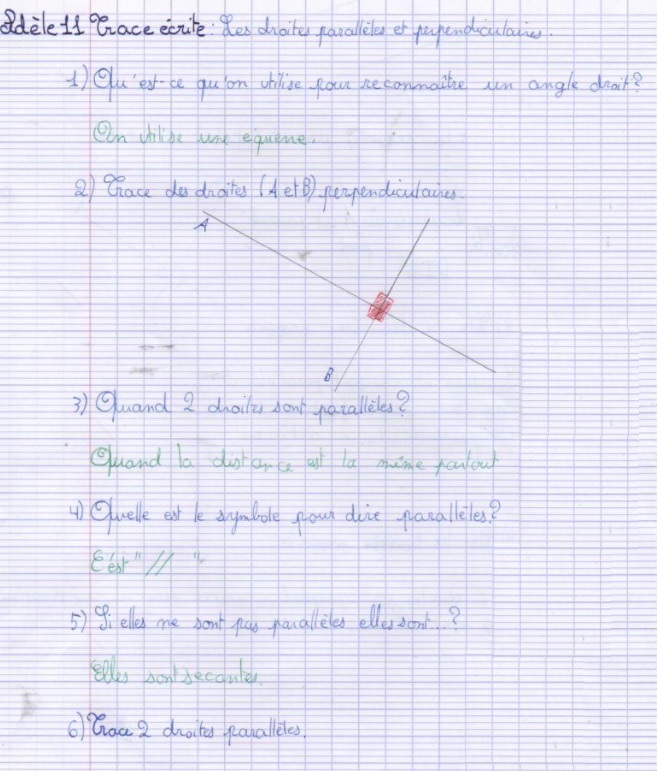 Adèle 11 Trace écrite : Les droites parallèles et perpendiculaires.
1) Qu'est-ce qu'on utilise pour reconnaître un angle droit?
On utilise une équerre.
2) Trace des droites (A et B) perpendiculaires.
A
B
3) Quand 2 droites sont parallèles?
Quand la distance est la même partout
4) Quelle est le symbole pour dire parallèles?
C'ést "//".
5) Si elles ne sont pas parallèles elles sont...?
Elles sont secantes.
6) Trace 2 droites parallèles.